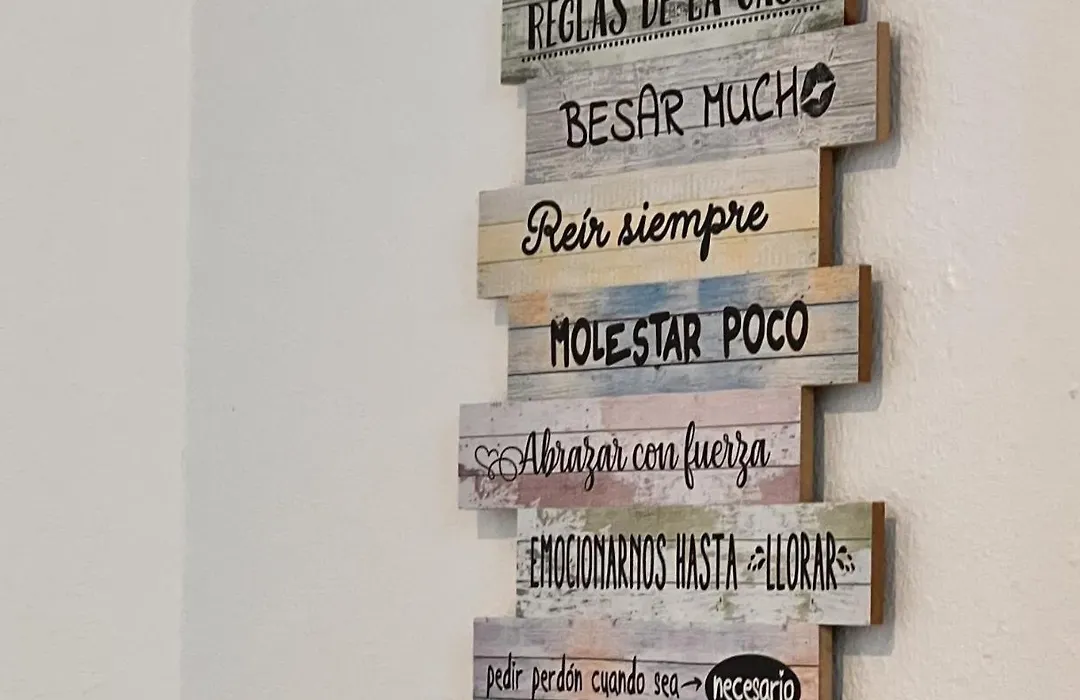 REGLAS DE LA CASA
BESAR MUCHO
Reír siempre
MOLESTAR POCO
Abrazar con fuerza
EMOCIONARNOS HASTA LLORAR
pedir perdón cuando sea → necesario